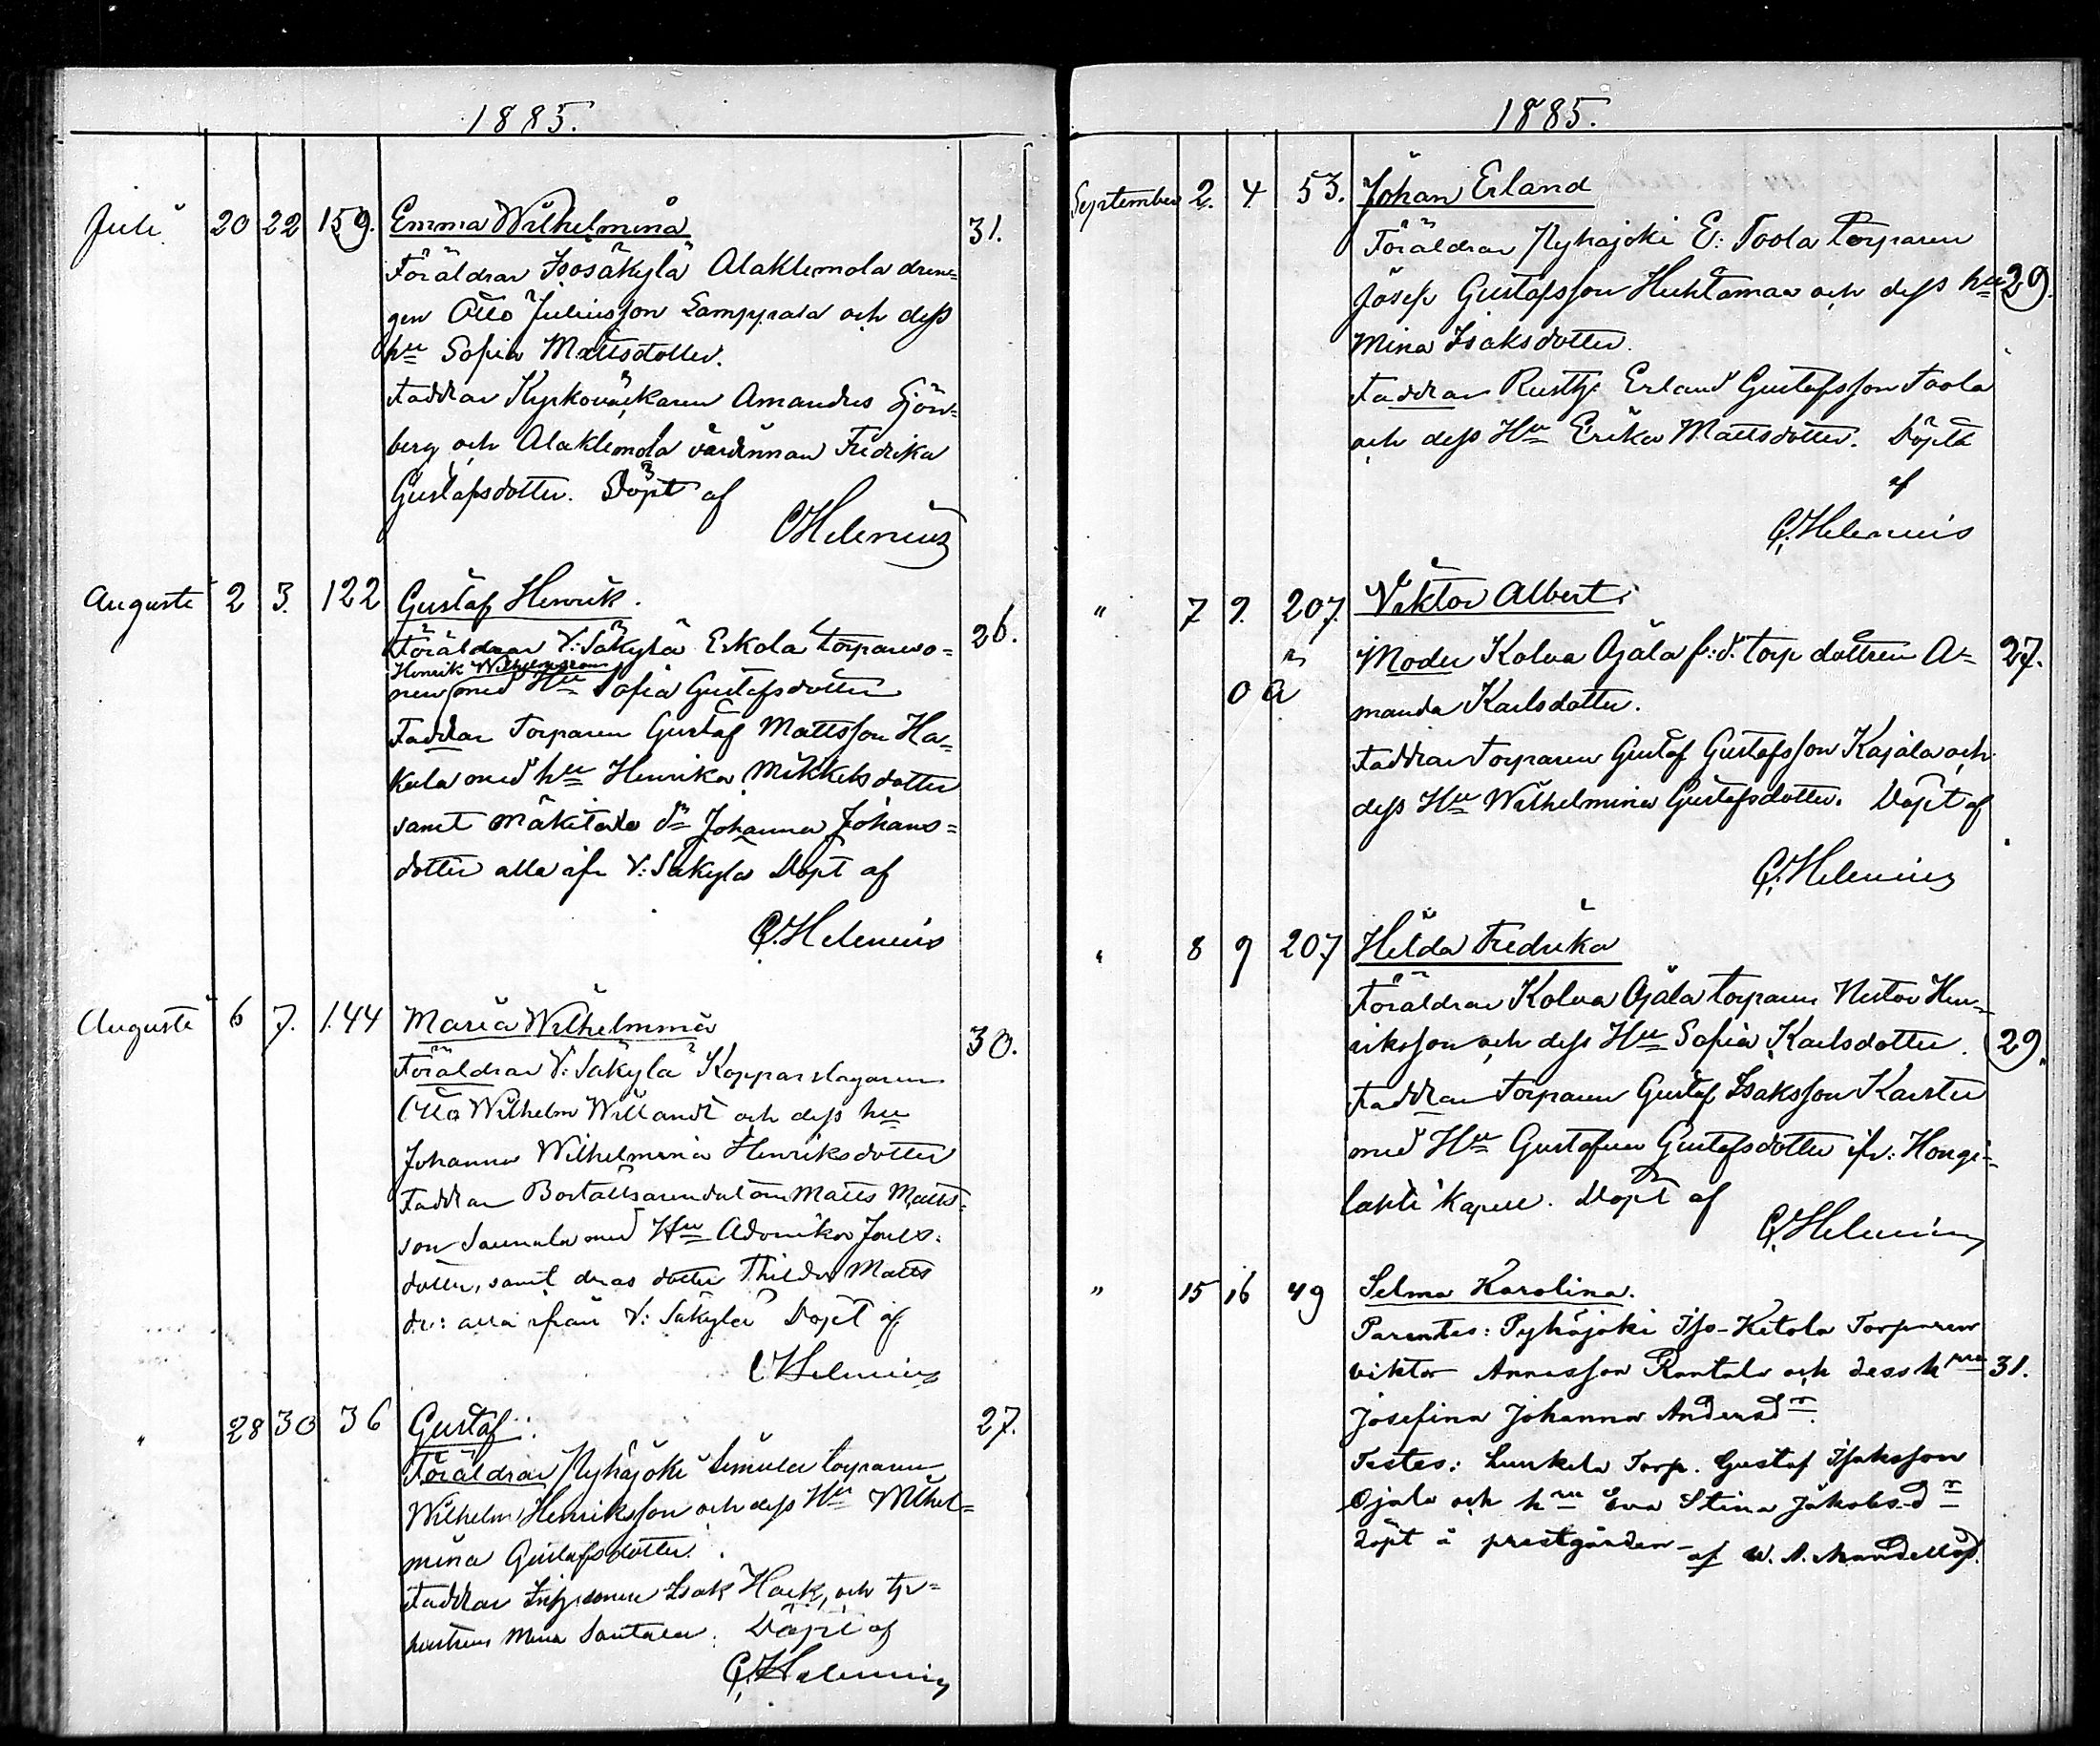 1885.
Juli 20 22 159. Emma Wilhelmina 31.
Föräldrar Isosäkylä Alaklemola dren-
gen Otto Juliusson Lamppala och dess
hu Sofia Mattsdotter.
Faddrar Kyrkoväktaren Amandus Sjön-
berg och Alaklemola värdinnan Fredrika
Gustafsdotter. Döpt af
C Helenius
Augusti 2 3. 122 Gustaf Henrik. 26.
Föräldrar V: Säkylä Erkola torpareso-
Henrik Wilhelmsson
nen med Hu Sofia Gustafsdotter
Faddrar Torparen Gustaf Mattsson Ha-
kula med hu Henrika Mikkelsdotter
samt Mäkitalo dr Johanna Johans-
dotter alla ifr V: Säkylä Döpt af
C. Helenius
Augusti 6 7. 144 Maria Wilhelmina 30.
Föräldrar V: Säkylä Kopparslagaren
Otto Wilhelm Willandt och dess hu
Johanna Wilhelmina Henriksdotter
Faddrar Boställsarendatorn Matts Matts-
son Saunala med Hu Adamika Joels-
dotter, samt deras dotter Thilda Matts
dr: alla ifrån V: Säkylä Döpt af
C Helenius
" 28 30 36 Gustaf: 27.
Föräldrar Pyhäjoki Simula torparen
Wilhelm Henriksson och dess Hu Wilhel-
mina Gustafsdotter.
Faddrar Isak Hack, och
Mina Santala. Döpt af
C. Helenius
1885.
September 2. 4. 53. Johan Erland
Föräldrar Pyhäjoki E: Toola torparen
Josef Gustafsson Huhtamaa och dess hu 29.
Mina Isaksdotter.
Faddrar Rusth: Erland Gustafsson Toola
och dess Hu Erika Mattsdotter. Döpt
af
C. Helenius
" 7 9. 207. Viktor Albert.
Moder Kolva Ojala f: d. torp dottren A- 27.
0 a manda Karlsdotter.
Faddrar Torparen Gustaf Gustafsson Kajala och
dess Hu Wilhelmina Gustafsdotter. Döpt af
C. Helenius
" 8 9 207 Hilda Fredrika
Föräldrar Kolva Ojala torparen Nestor Hen-
riksson och dess Hu Sofia Karlsdotter. 29.
Faddrar Torparen Gustaf Isaksson Karstu
med Hu Gustafva Gustafsdotter ifr: Hongi-
lahti kapell. Döpt af
C. Helenius
" 15 16 49 Selma Karolina.
Parentes: Pyhäjoki Iso-Ketola Torparen
viktor Annasson Rantala och dess hru 31.
Josefina Johanna Andersdr.
Testes: Lunkela Torp. Gustaf Isaksson
Ojala och hru Eva Stina Jakobs-dr
döpt å prestgården af W. A. Mandellöf.